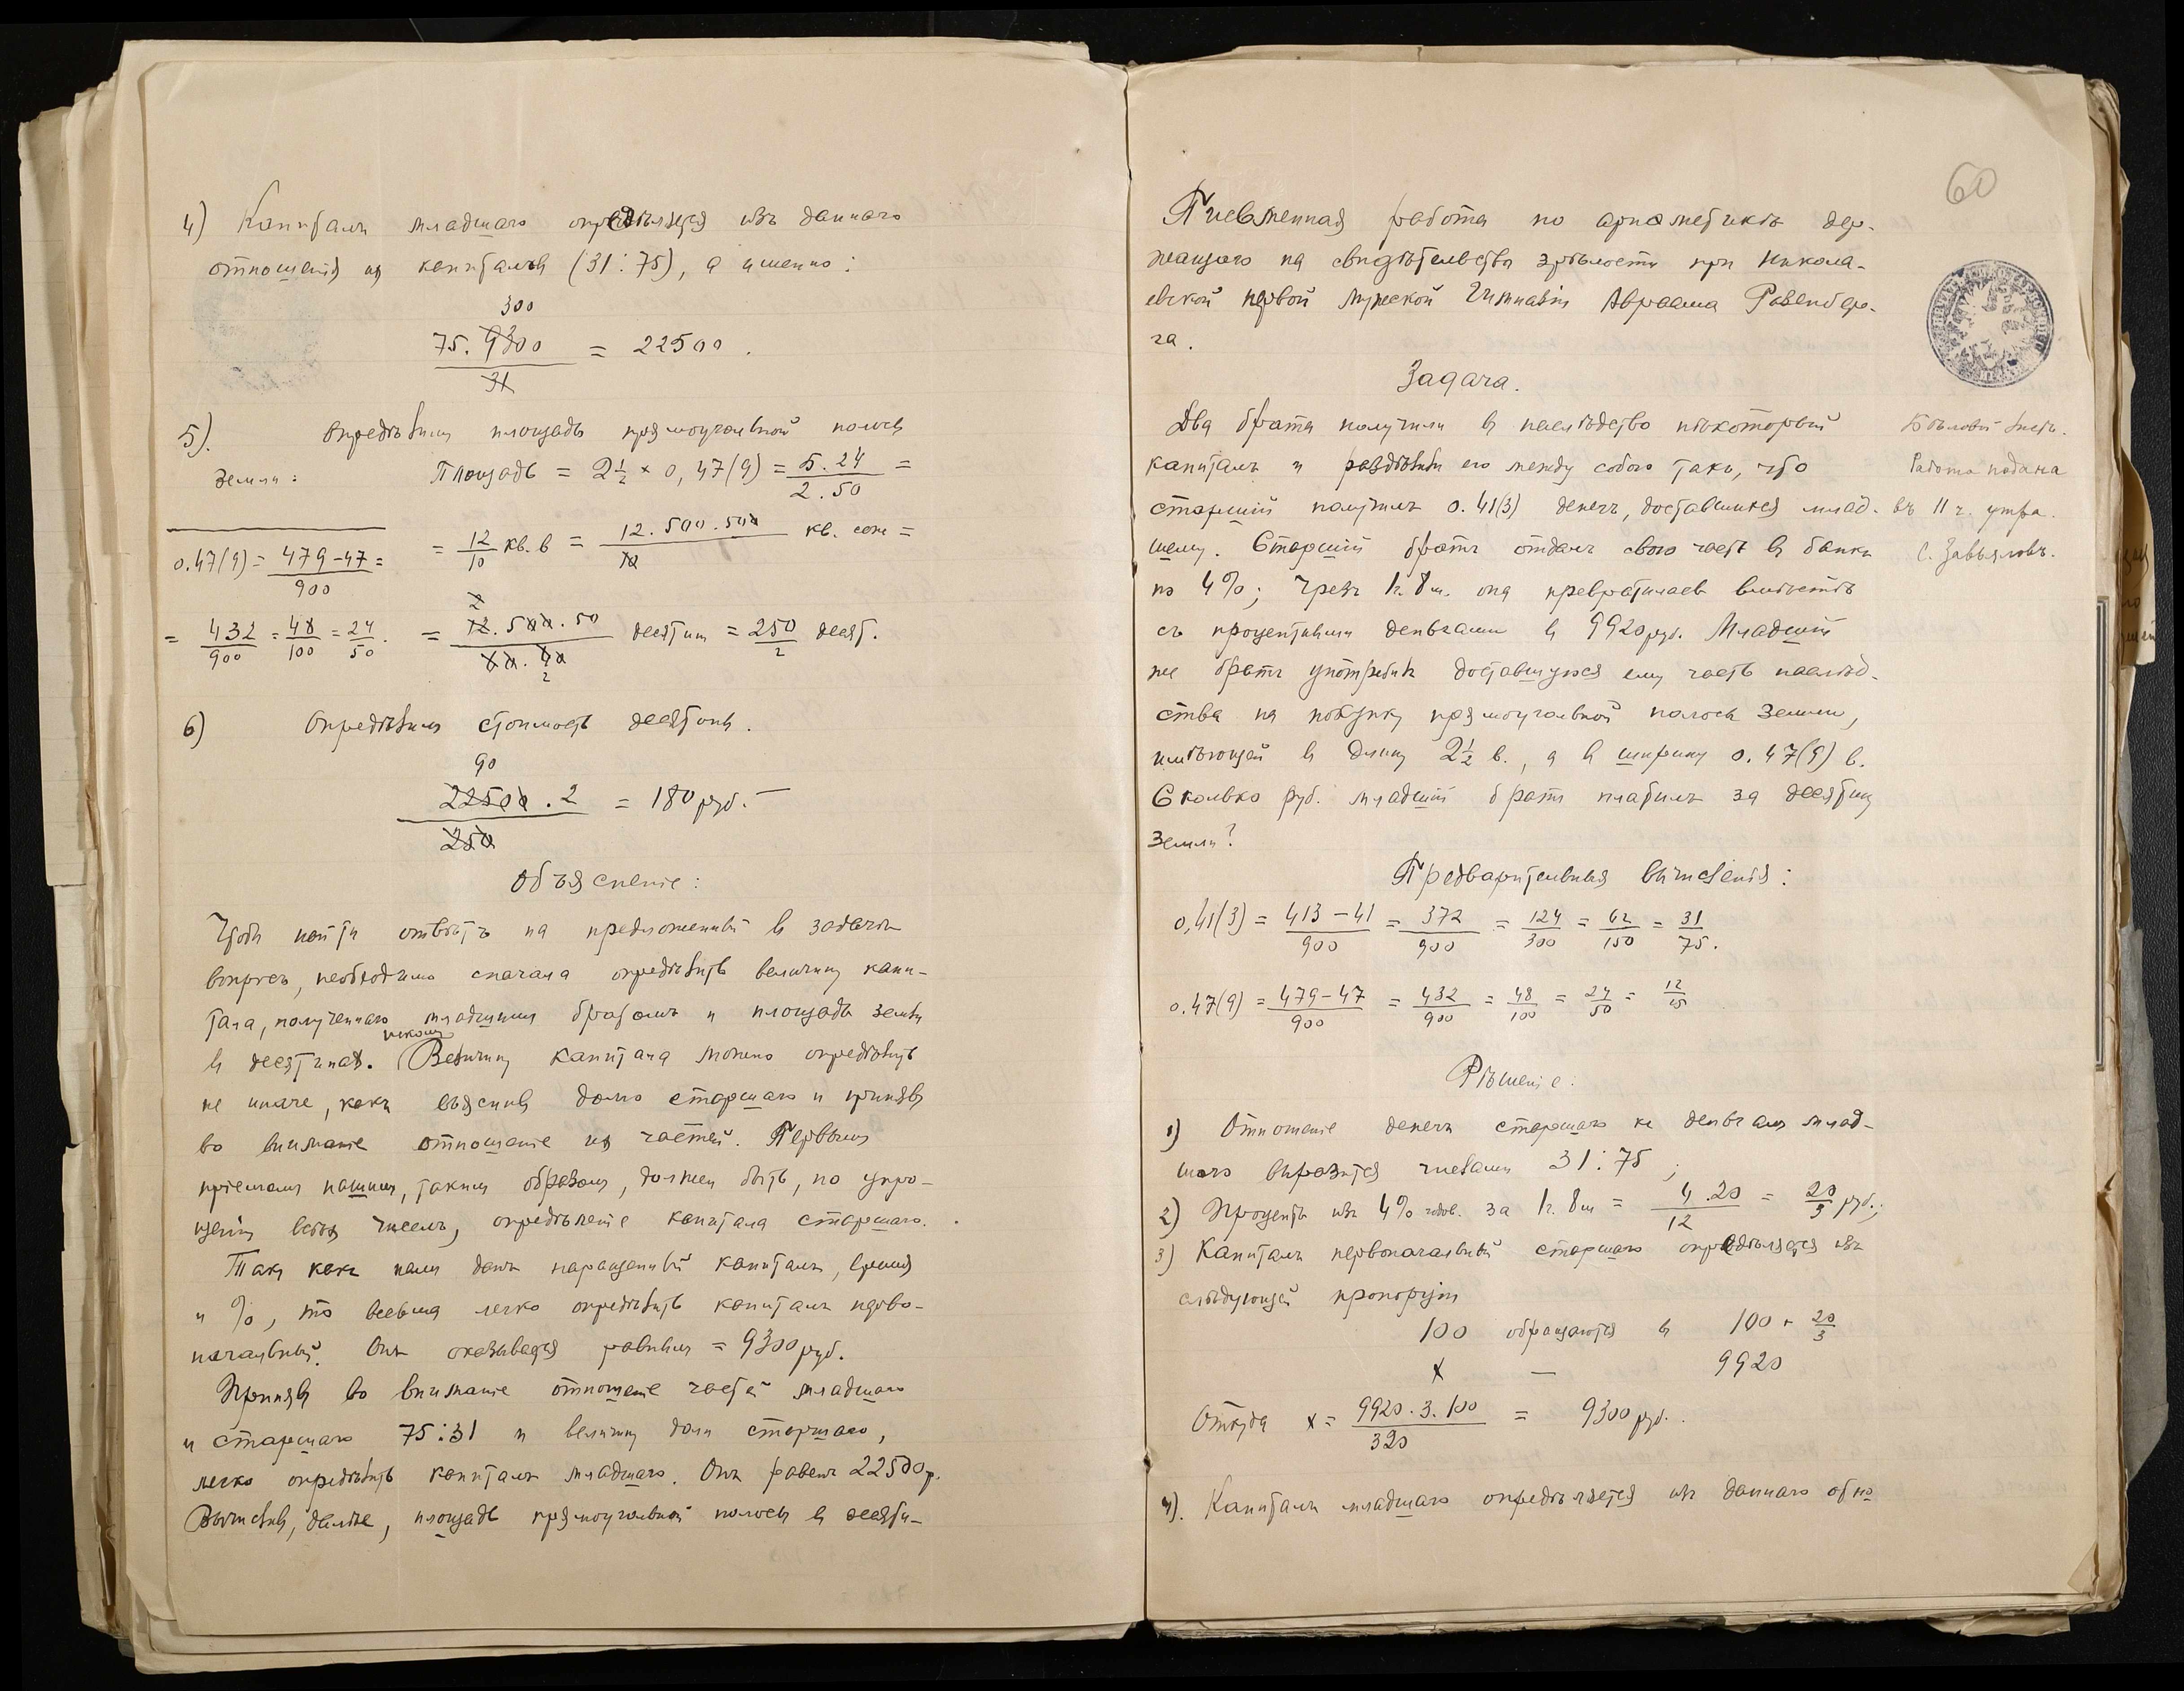 4) Капиталъ младшаго опредѣляется изъ даннаго
отношенія ихъ капиталовъ (31:75), а именно:
300
75. 9300 = 22500.
31
5). Опредѣлимъ площадь прямоугольной полосы
земли: Площадь = 2 1/2 × 0,47(9) = 5.24 / 2.50 =
0.47(9) = 479-47 / 900 =
= 12/10 кв. в = 12.500.500 / 10 кв. саж =
= 432/900 = 48/100 = 24/50.
= 12.500.50 / десятин = 250/2 десят.
6) Опредѣлимъ стоимость десятины.
90
22500.2 / 250 = 180 руб.—
Объясненіе:
Чтобы найти отвѣтъ на предложенный въ задачѣ
вопросъ, необходимо сначала опредѣлить величину капи-
тала, полученнаго младшимъ братомъ и площадь земли
въ десятинахъ. Величину капитала можно опредѣлить
не иначе, какъ выяснивъ долю старшаго и принявъ
во вниманіе отношеніе ихъ частей. Первымъ
пріемомъ нашимъ, такимъ образомъ, долженъ быть, по упро-
щеніи всѣхъ чиселъ, опредѣленіе капитала старшаго.
Такъ какъ намъ данъ наращенный капиталъ, время
и %, то весьма легко опредѣлить капиталъ перво-
начальный. Онъ оказывается равнымъ = 9300 руб.
Принявъ во вниманіе отношеніе частей младшаго
и старшаго 75:31 и величину доли старшаго,
легко опредѣлить капиталъ младшаго. Онъ равенъ 22500 р.
Вычисливъ, далѣе, площадь прямоугольной полосы въ десяти-
60
Письменная работа по ариѳметикѣ дер-
жащаго на свидѣтельство зрѣлости при Никола-
евской первой мужской Гимназіи Авраама Розенбер-
га.
Задача.
Два брата получили въ наслѣдство нѣкоторый
капиталъ и раздѣлили его между собою такъ, что
старшій получилъ 0.41(3) денегъ, доставшихся млад-
шему. Старшій братъ отдалъ свою часть въ банкъ
по 4%; чрезъ 1 г. 8 м. она превратилась вмѣстѣ
съ процентными деньгами въ 9920 руб. Младшій
же братъ употребилъ доставшуюся ему часть наслѣд-
ства на покупку прямоугольной полосы земли,
имѣющей въ длину 2 1/2 в., а въ ширину 0.47(9) в.
Сколько руб. младшій братъ платилъ за десятину
земли?
Бѣловой листъ.
Работа подана
въ 11 ч. утра.
С. Завьяловъ.
Предварительныя вычисленія:
0,41(3) = 413-41 / 900 = 372/900 = 124/300 = 62/150 = 31/75.
0.47(9) = 479-47 / 900 = 432/900 = 48/100 = 24/50 = 12/25
Рѣшеніе:
1) Отношеніе денегъ старшаго къ деньгамъ млад-
шаго выразится числами 31:75;
2) Проценты изъ 4% годов. за 1 г. 8 м = 4.20 / 12 = 20/3 руб.;
3) Капиталъ первоначальный старшаго опредѣляется изъ
слѣдующей пропорціи
100 обращаются въ 100 + 20/3
x — 9920
Откуда x = 9920.3.100 / 320 = 9300 руб.
4). Капиталъ младшаго опредѣляется изъ даннаго отно